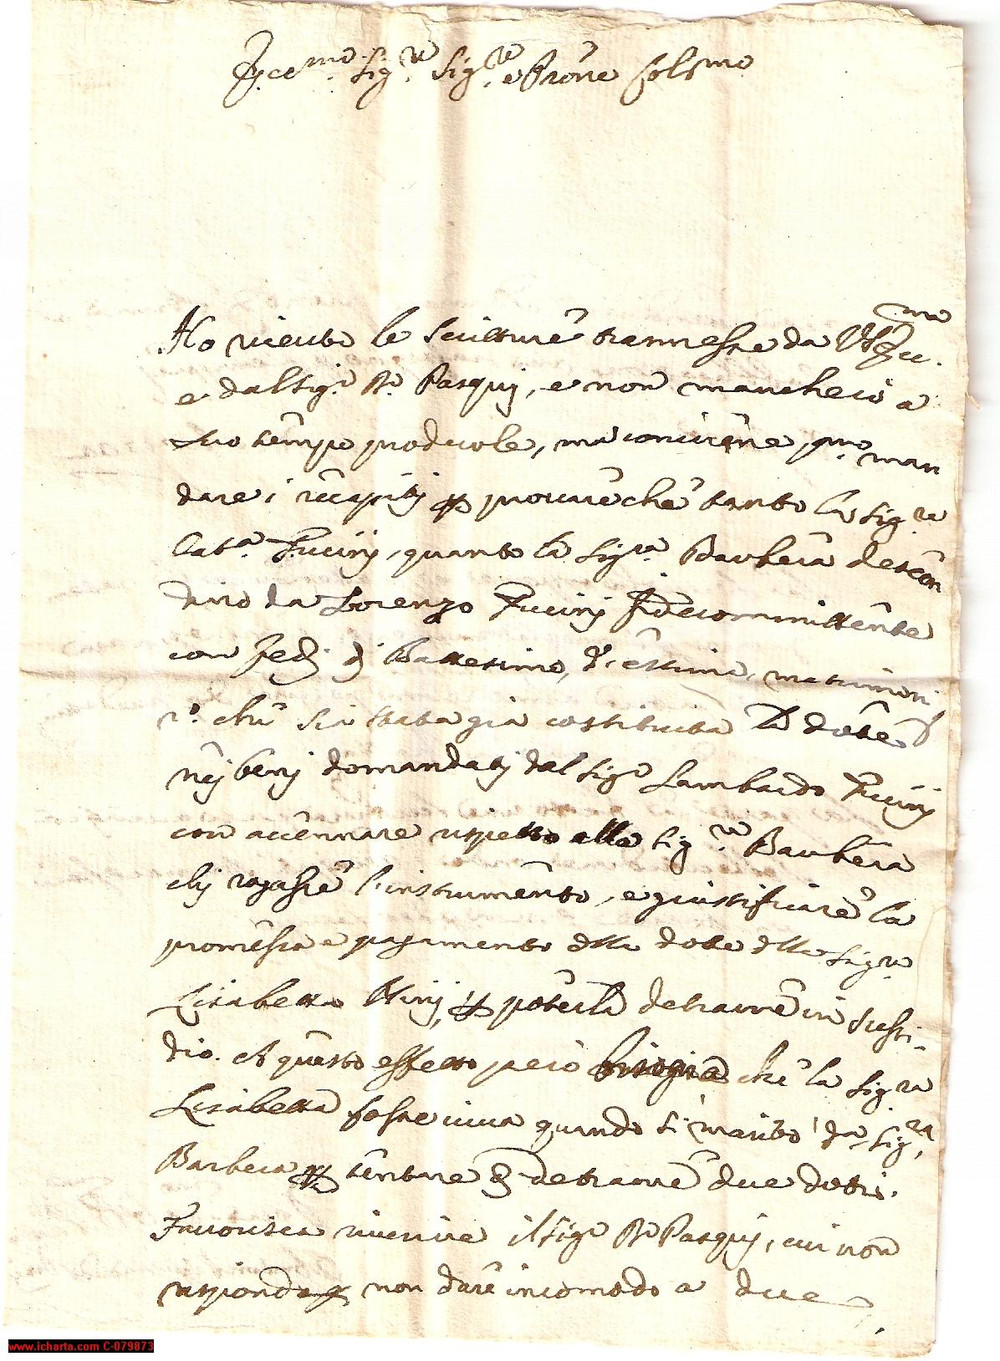 Ecc.mo Sig.re Sig.re e Prone Col.mo
Ho riceuto le scritture trasmesse da VS Ecc.ma
e dal Sig.r Pasquj, e non mancherò a
suo tempo produrle, ma conviene, p.mo man
dare i recapitj procurare che tanto la Sig.ra
Cat.a Fucinj, quanto la Sig.ra Barbera descen
dino da Lorenzo Fucinj fidecommittente
con fedj dj Battesimo, matrimoni
che sia stata già costituita la dote
nej benj domandatj dal Sig.r Lambardo Fucinj
con accennare rispetto alla Sig.ra Barbera
chj rogasse l'instrumento, e giustificare la
promessa e pagamento della dote della Sig.ra
Lisabetta poterla detrarre in sussi-
dio. A questo effetto però bisogna che la Sig.ra
Lisabetta fosse viva quando si maritò la Sig.ra
Barbera tentare detrarre due dotti.
Favorisca riverire il Sig.r Pasquj, cui non
rispondo non dare incomodo a due
www.icharta.com C-079873